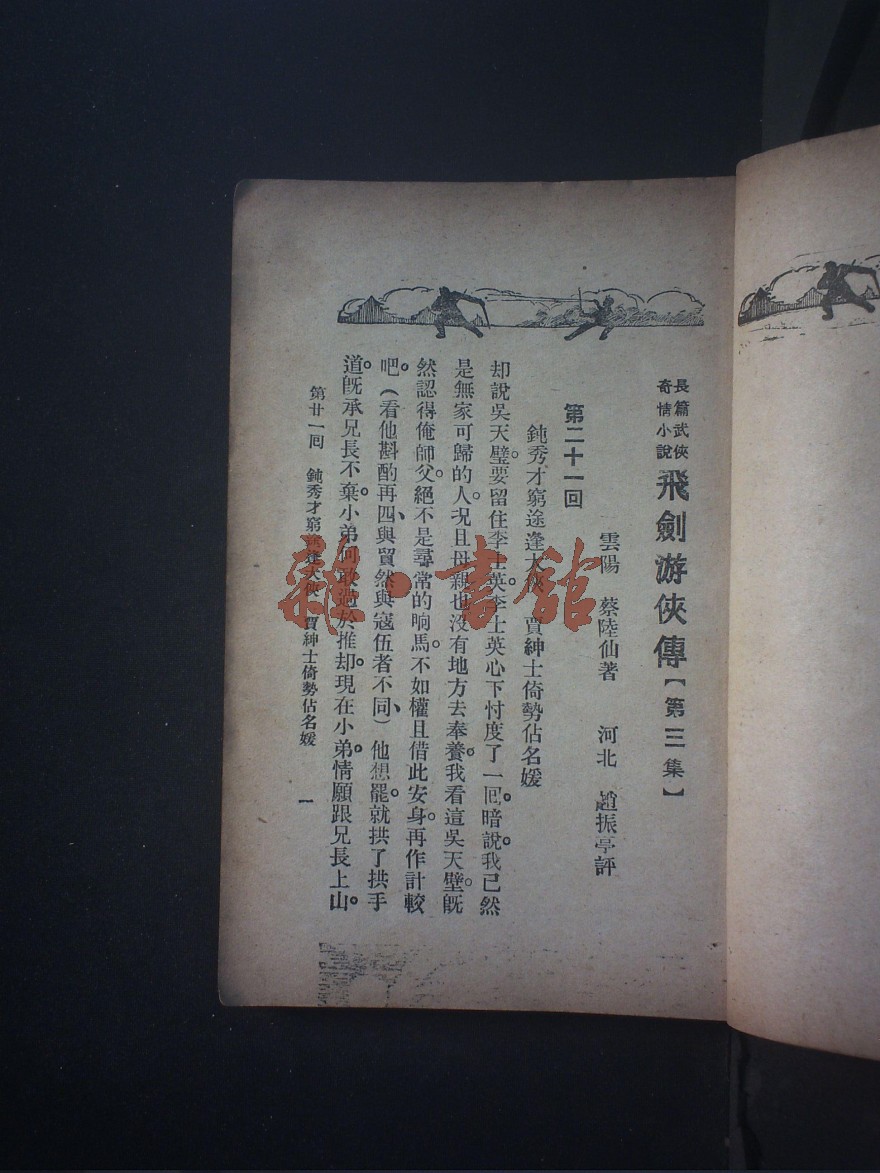 長篇武俠
奇情小說
飛劍游俠傳【第三集】
雲陽 蔡陸仙著 河北 趙振亭評
第二十一回
鈍秀才窮途逢大俠 賈紳士倚勢佔名媛
却說吳天璧。要留住李士英。李士英心下忖度了一回。暗說。我已然
是無家可歸的人。况且母親也沒有地方去奉養。我看這吳天璧。旣
然認得俺師父。絕不是尋常的响馬。不如權且借此安身。再作計較
吧。(看他斟酌再四、與貿然與寇伍者不同、)他想罷。就拱了拱手
道。旣承兄長不棄。小弟何敢過於推却。現在小弟。情願跟兄長上山。
第廿一回 鈍秀才窮途逢大俠 賈紳士倚勢佔名媛 一
雜·書館